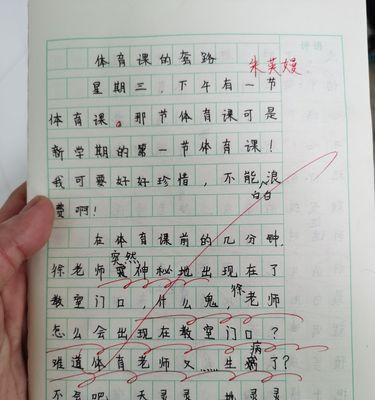 体育课的套路
朱英嫚
评语
星期三,下午有一节
体育课。那节体育课可是
新学期的第一节体育课!
我可要好好珍惜,不能白白浪
费啊!
在体育课前的几分钟,
徐老师突然神秘地出现在了
教室门口,什么鬼,徐老师
怎么会出现在教室门口?
难道体育老师又……生病了?
不会吧,天灵灵地灵灵